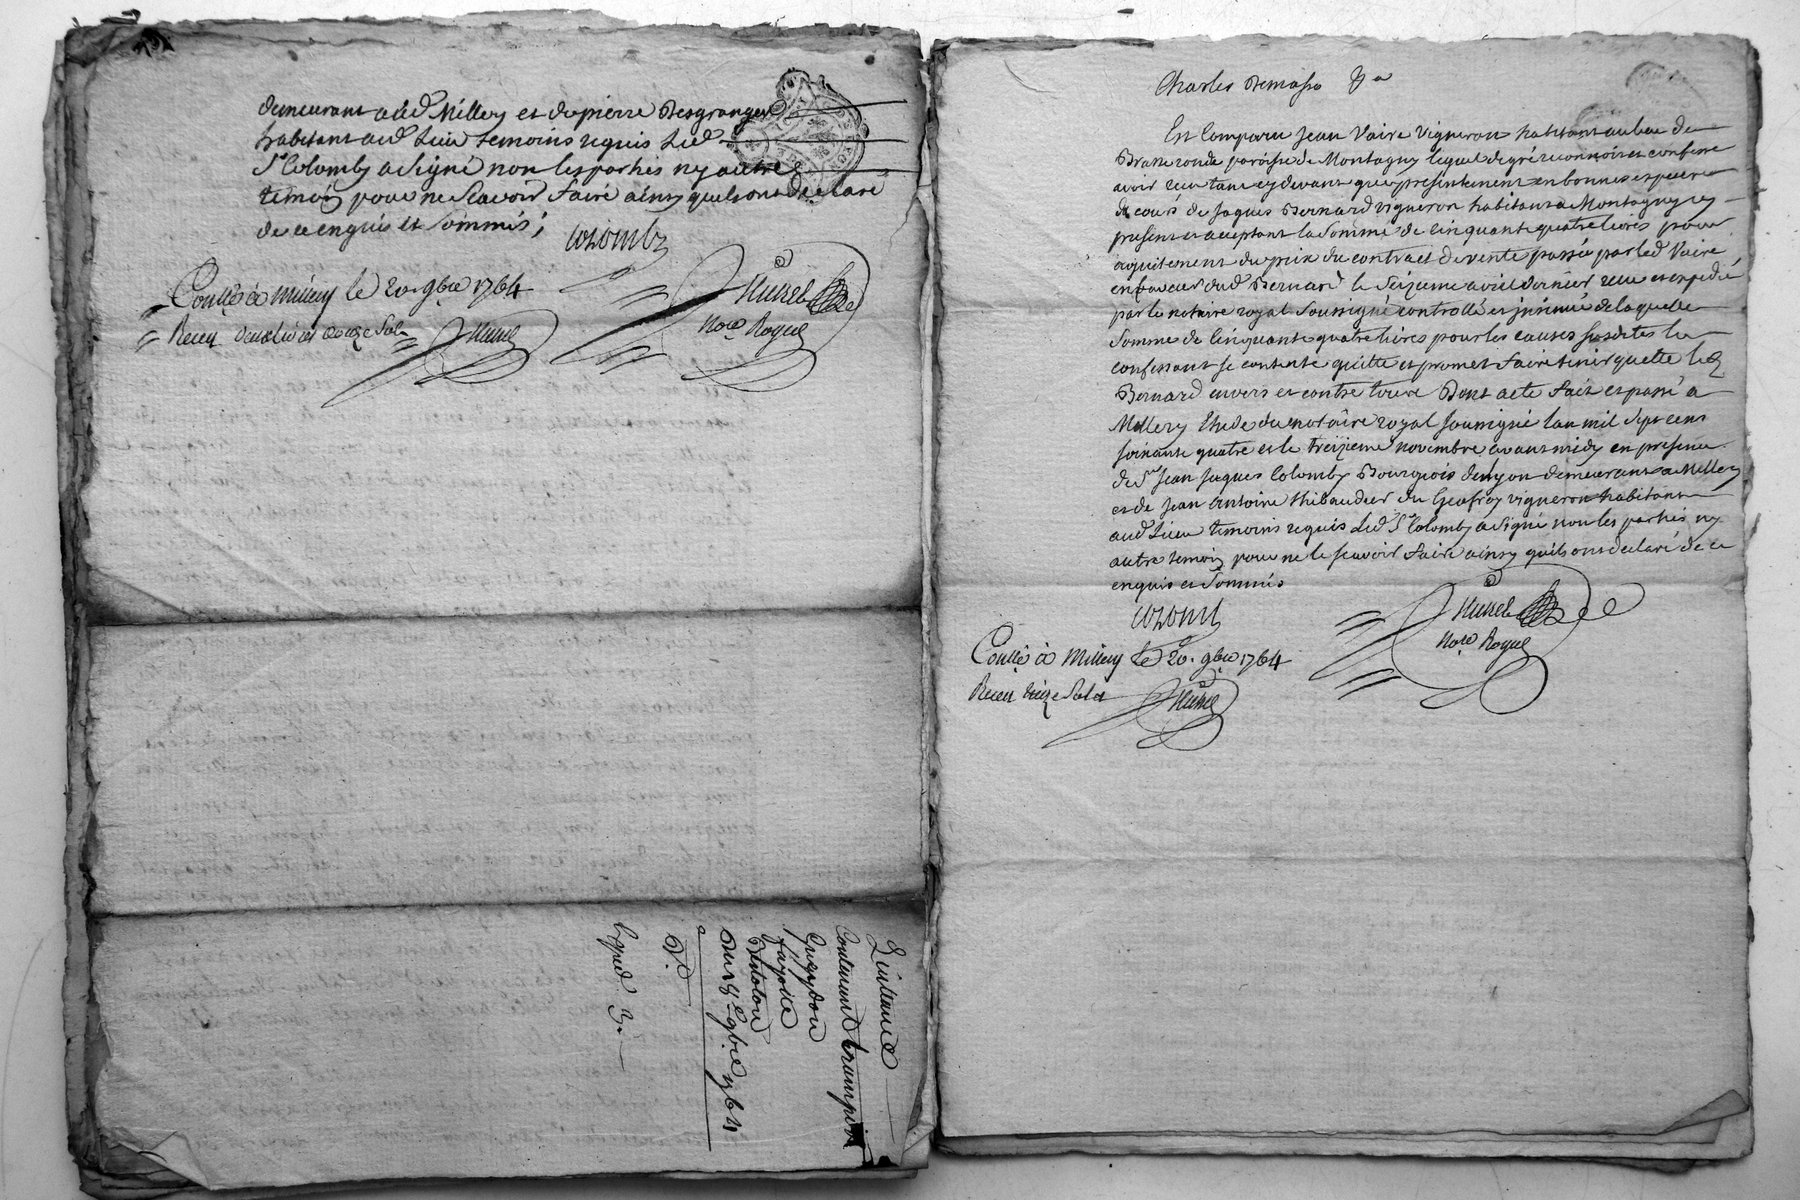 demeurant aud Millery et de pierre Desgranges
habitant aud Lieu temoins requis Led
Sr Colomby a Signé non les parties ny autre
temoin pour ne Scavoir faire ainsy quils ont declaré
de ce enquis et Sommés ;
Colomby
Contllé à Millery le 20. 9bre 1764
Receu deux livres douze Sols
Nore Royal
Quittance
Contenant transport
9bre 1764
Charles Demasso
En Comparu Jean Vaire vigneron habitant au lieu de
Brasseronde paroisse de Montagny lequel de gré reconnoit et confesse
avoir receu tant cy devant que presentement en bonnes especes
de cours de Jaques Bernard vigneron habitant a Montagny icy
present et acceptant la Somme de Cinquante quatre livres pour
acquitement du prix du contract de vente passée par led Vaire
en faveur dud Bernard le Seizieme avril dernier receu et expedié
par le notaire royal Soussigné controllé et insinué de laquelle
Somme de Cinquante quatre livres pour les causes susdites le
confessant se contente quitte et promet faire tenir quitte led
Bernard envers et contre tous Dont acte fait et passé a
Millery Etude du notaire royal Soussigné l'an mil Sept cens
soixante quatre et le treizieme novembre avant midy en presence
de Sr Jean Jaques Colomby Bourgeois de Lyon demeurant a Millery
et de Jean Antoine Thibaudier du Geofray vigneron habitant
aud Lieu temoins requis Led Sr Colomby a Signé non les parties ny
autre temoin pour ne le scavoir faire ainsy quils ont declaré de ce
enquis et Sommés
Colomby
Nore Royal
Contllé à Millery le 20. 9bre 1764
Receu treize Sols